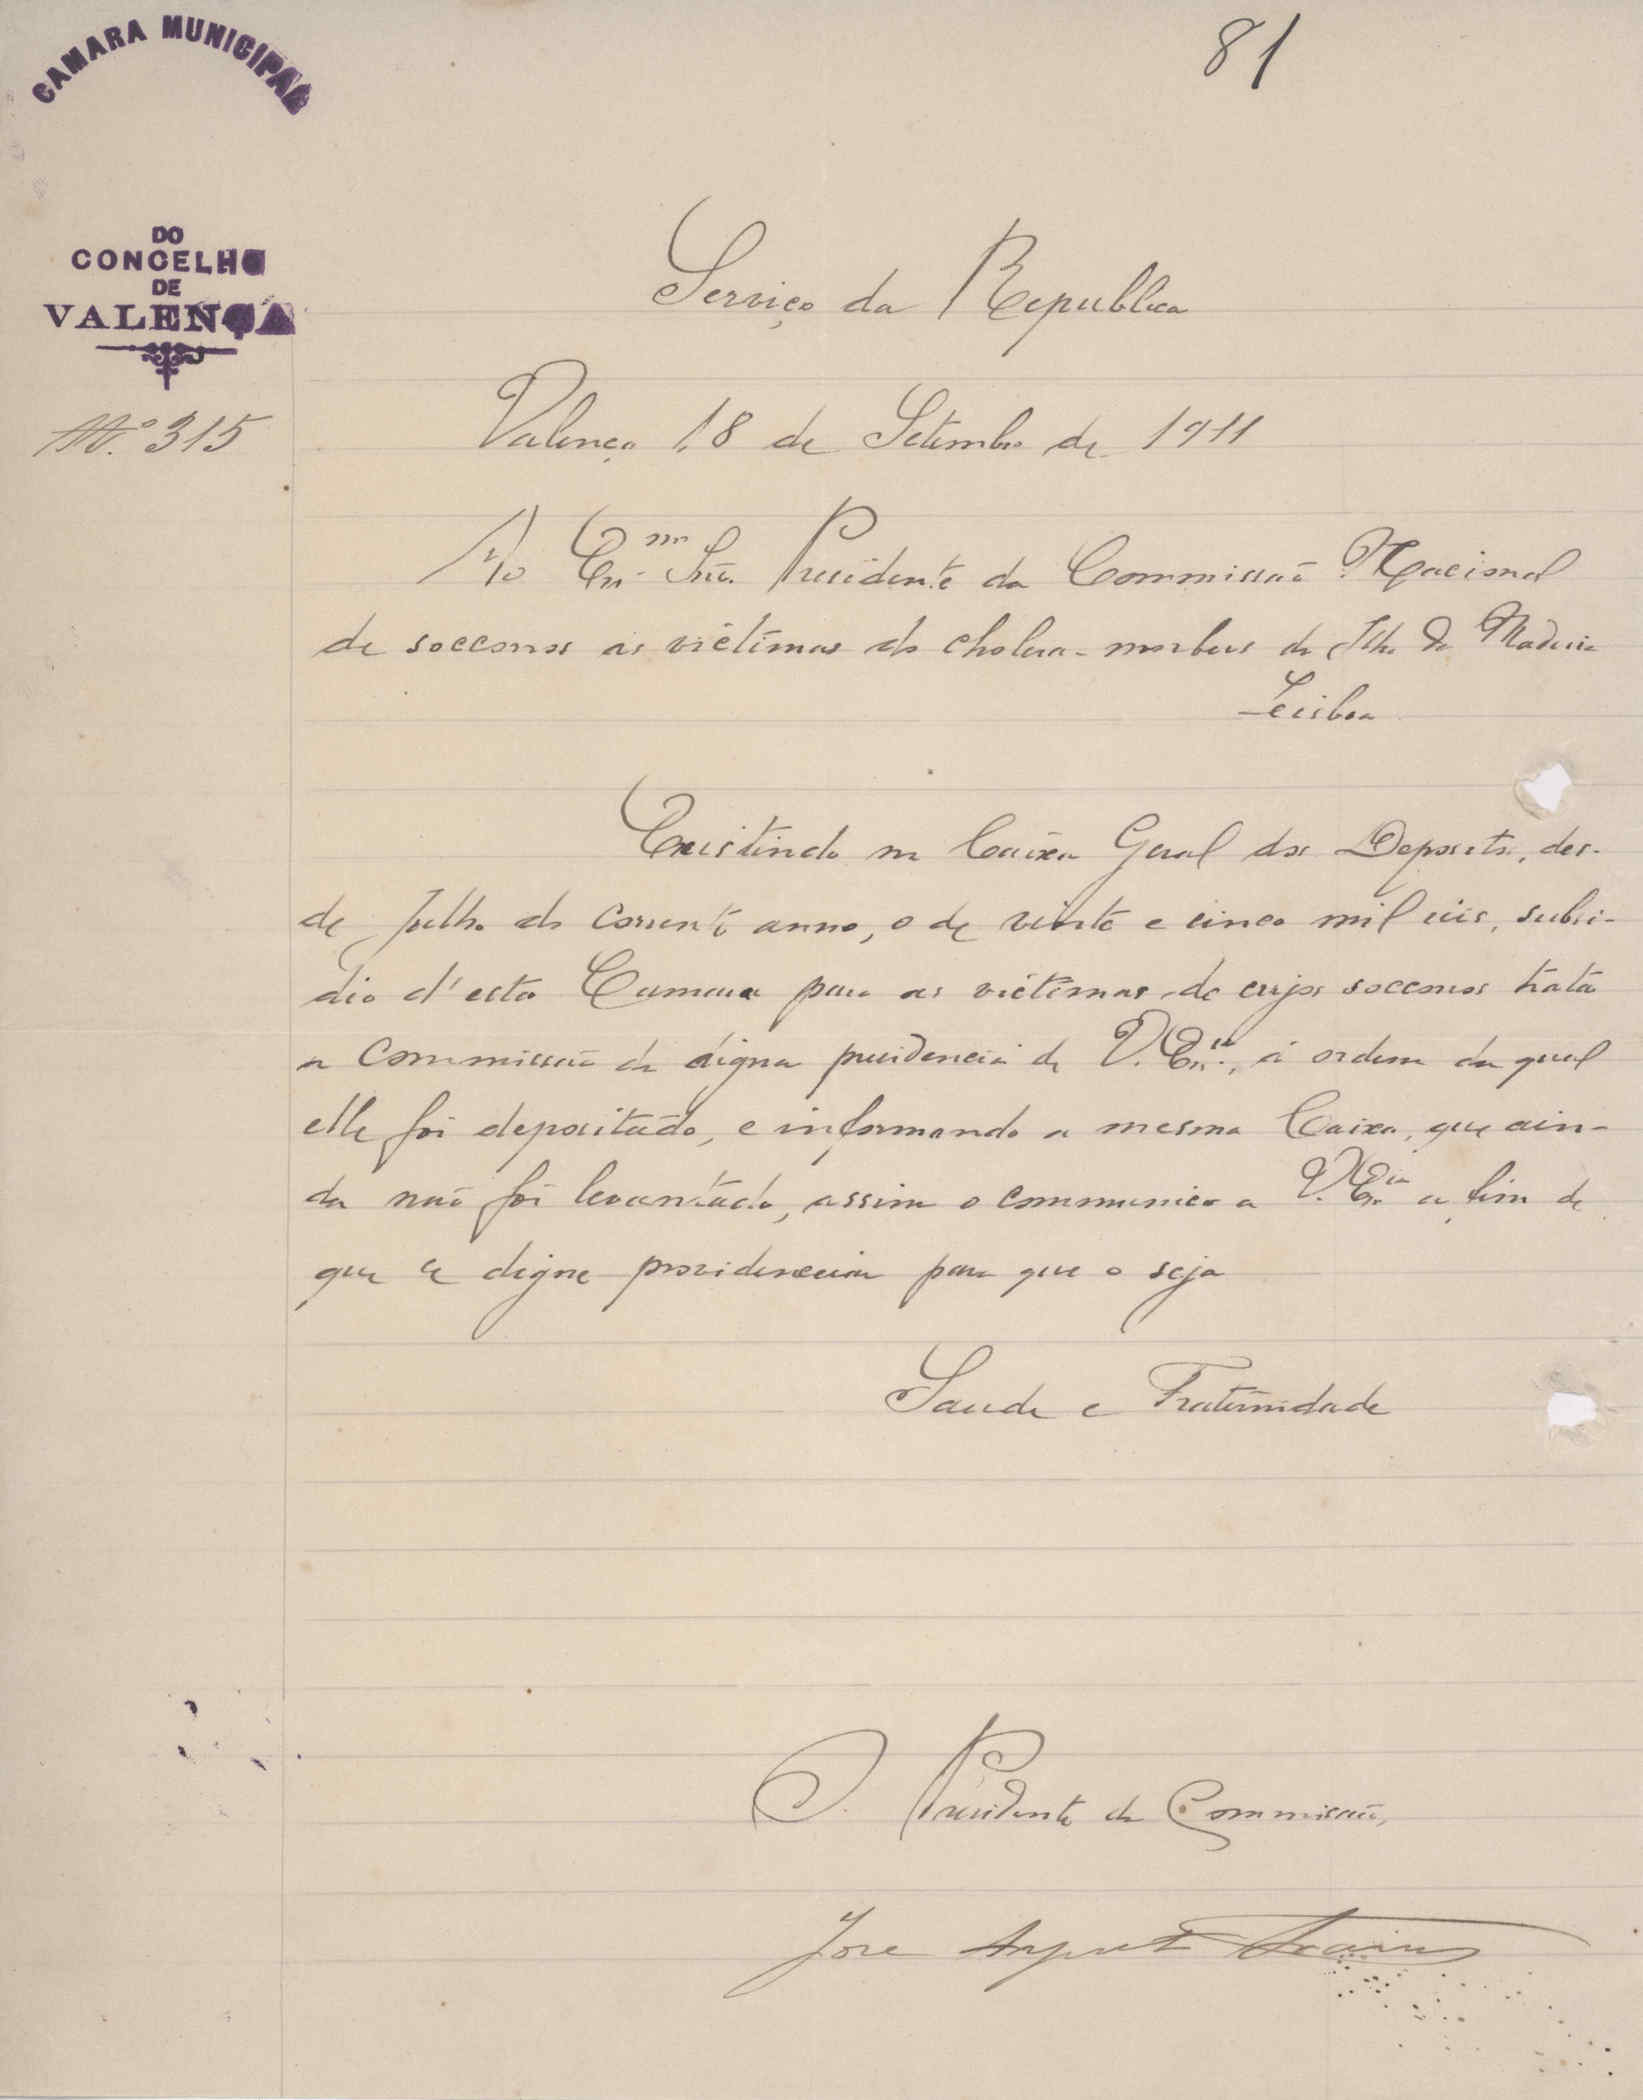 81
CAMARA MUNICIPAL
DO
CONCELHO
DE
VALENÇA
N.º 315
Serviço da Republica
Valença 18 de Setembro de 1911
Ao Exmo. Snr. Presidente da Commissão Nacional
de soccorros ás victimas do cholera-morbus da Ilha da Madeira
Lisboa
Existindo na Caixa Geral dos Depositos, des-
de Julho do corrente anno, o de vinte e cinco mil reis, subsi-
dio d'esta Camara para as victimas de cujos soccorros trata
a Commissão da digna presidencia de V. Exª., á ordem da qual
elle foi depositado, e informando a mesma Caixa, que ain-
da não foi levantado, assim o communico a V. Exia a fim de
que se digne providenciar para que o seja
Saude e Fraternidade
O Presidente da Commissão,
José